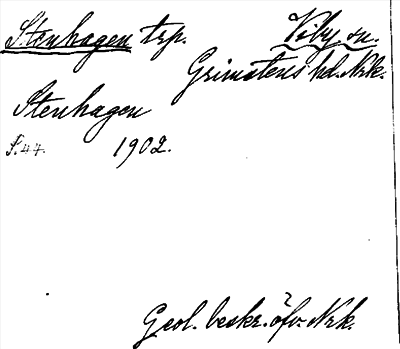 Stenhagen trp. Viby sn.
Grimstens hd. Nrk.
Stenhagen
S.44. 1902.
Geol. beskr. öfv. Nrk.